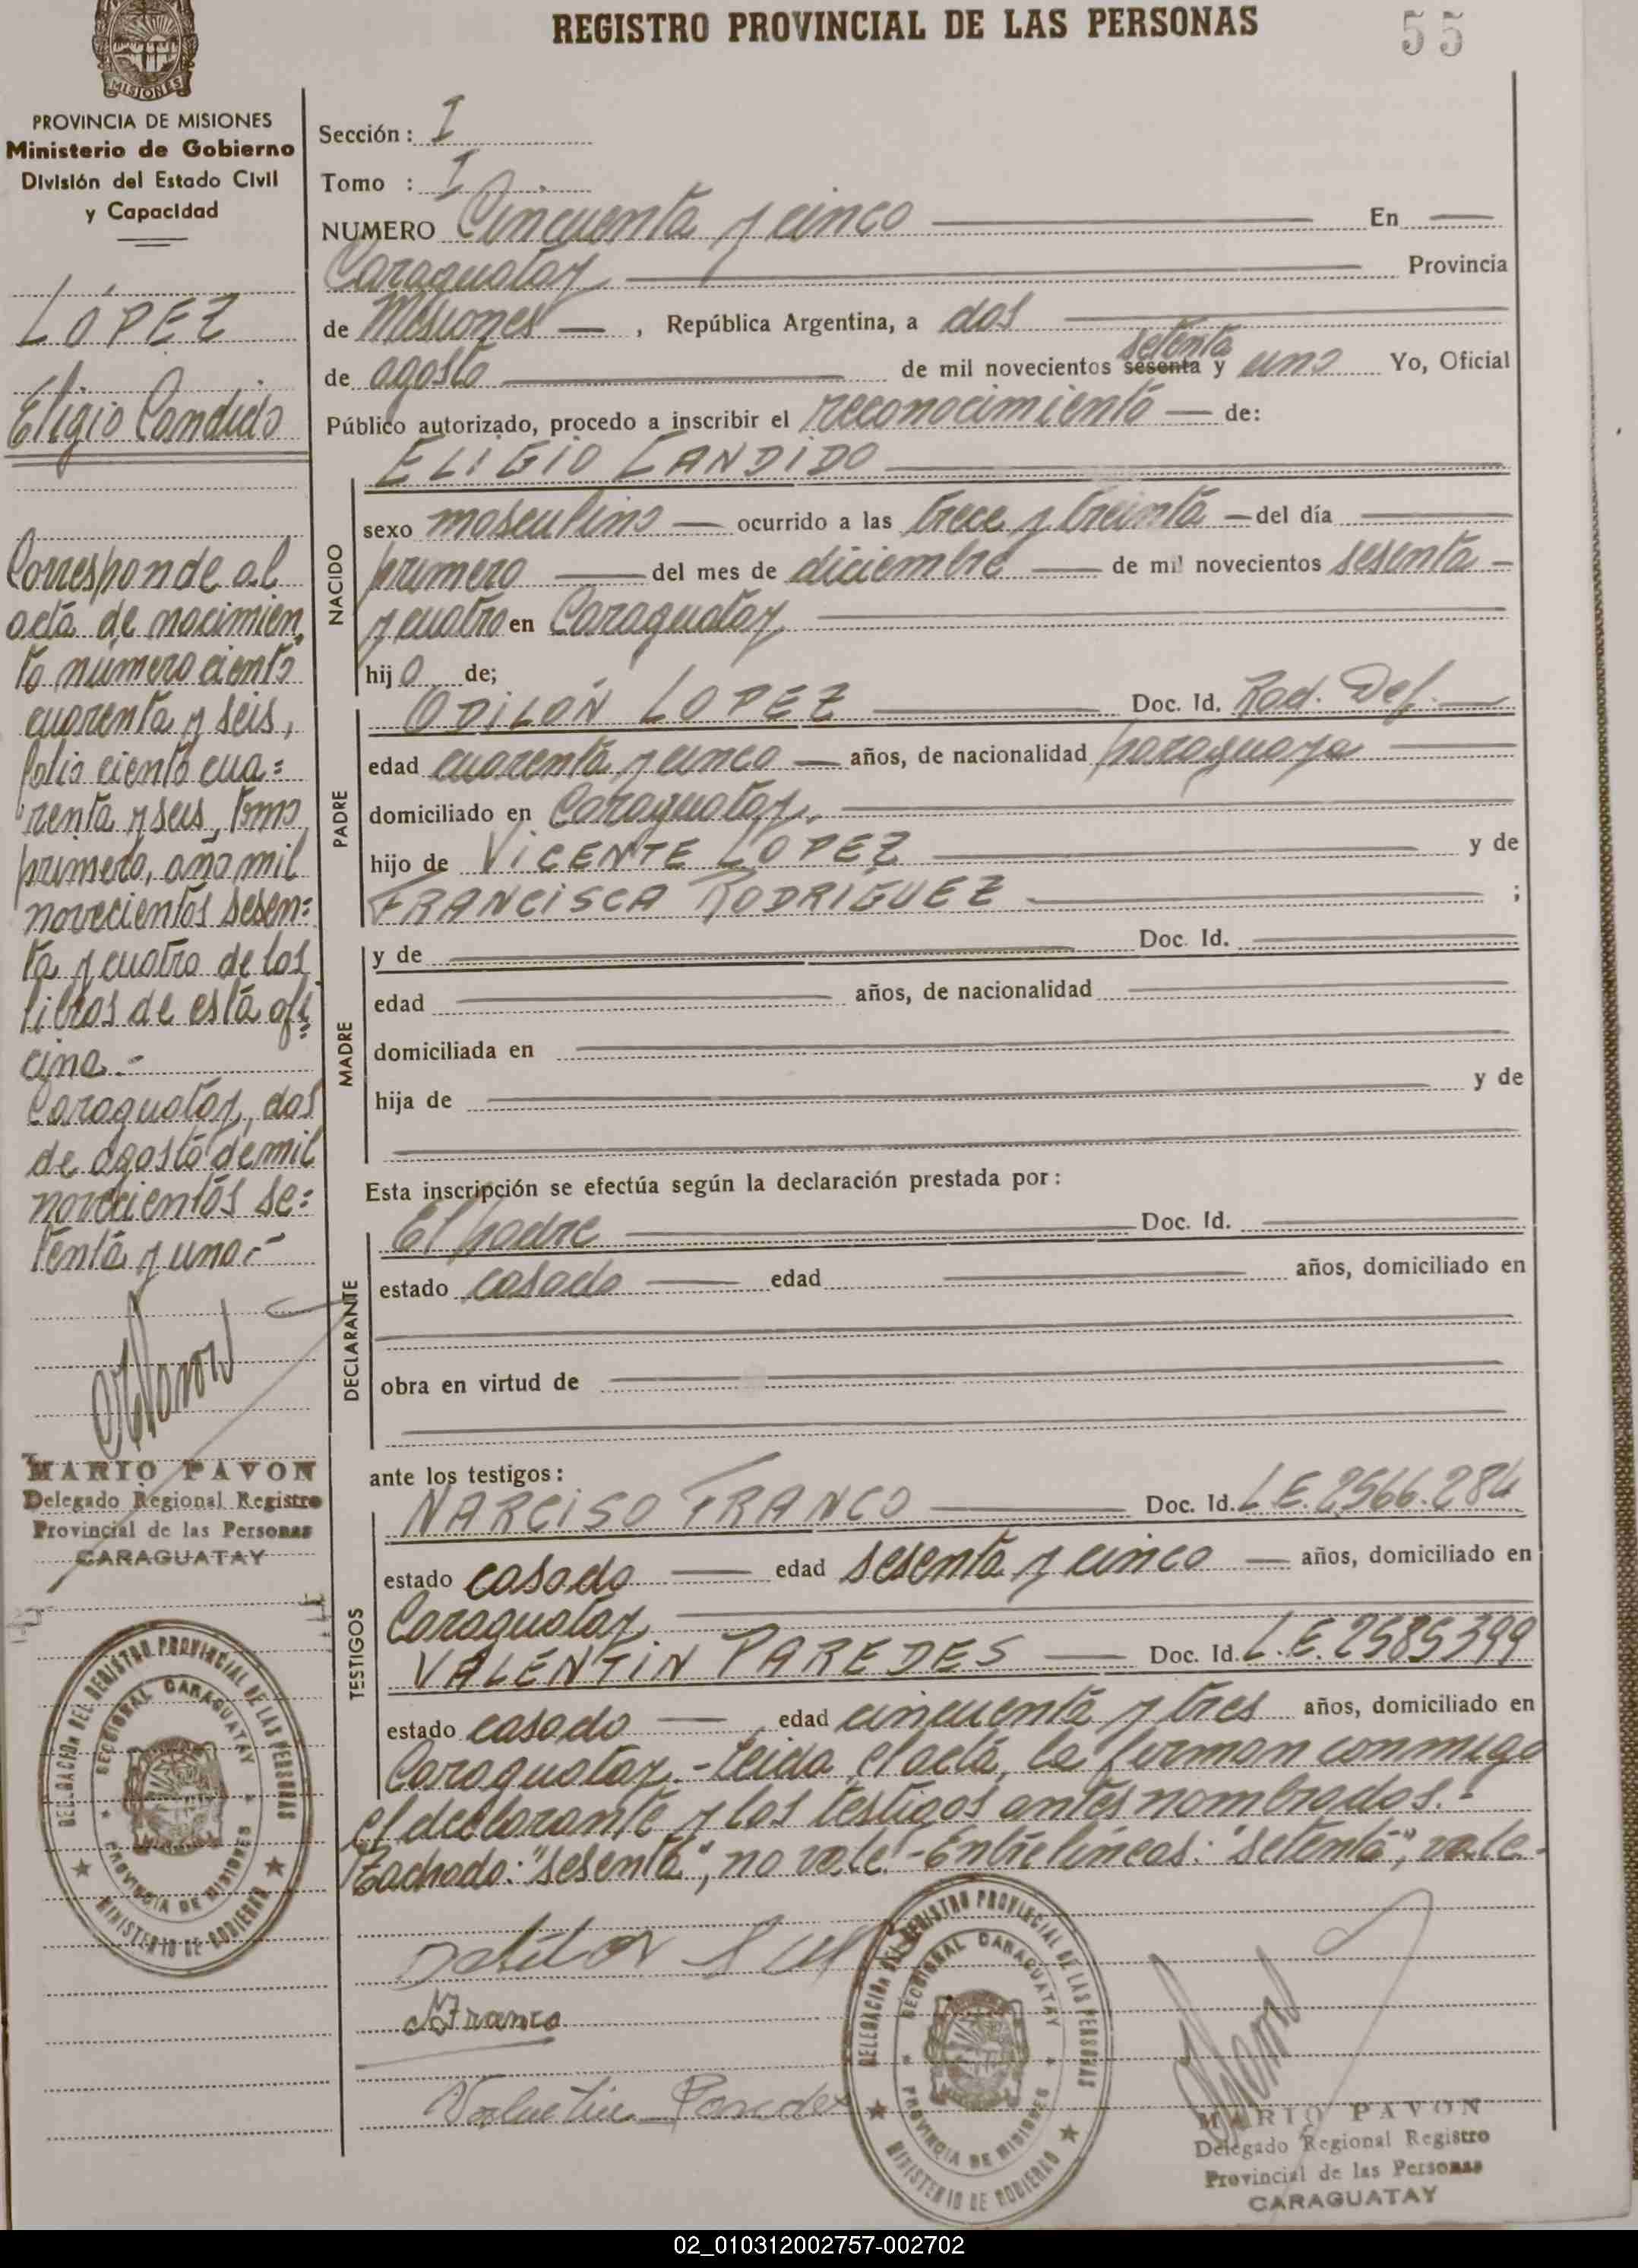 REGISTRO PROVINCIAL DE LAS PERSONAS
55
MISIONES
PROVINCIA DE MISIONES
Ministerio de Gobierno
División del Estado Civil
y Capacidad
LÓPEZ
Eligio Candido
Corresponde al
acta de nacimien
to número ciento
cuarenta y seis,
folio ciento cua=
renta y seis, tomo
primero, año mil
novecientos sesen=
ta y cuatro de los
libros de esta ofi
cina.-
Caraguatay, dos
de agosto de mil
novecientos se=
tenta y uno.-
MARIO PAVON
Delegado Regional Registro
Provincial de las Personas
CARAGUATAY
DELEGACION DEL REGISTRO PROVINCIAL DE LAS PERSONAS
SECCIONAL CARAGUATAY
PROVINCIA DE MISIONES
MINISTERIO DE GOBIERNO
Sección: I
Tomo : I
NUMERO Cincuenta y cinco En
Caraguatay Provincia
de Misiones , República Argentina, a dos
setenta
de agosto de mil novecientos sesenta y uno Yo, Oficial
Público autorizado, procedo a inscribir el reconocimiento de:
NACIDO
ELIGIO CANDIDO
sexo masculino ocurrido a las trece y treinta del día
primero del mes de diciembre de mil novecientos sesenta
y cuatro en Caraguatay
hijo de;
PADRE
ODILÓN LOPEZ Doc. Id. Rad. Def.
edad cuarenta y cinco años, de nacionalidad paraguaya
domiciliado en Caraguatay,
hijo de VICENTE LOPEZ y de
FRANCISCA RODRIGUEZ ;
MADRE
y de Doc. Id.
edad años, de nacionalidad
domiciliada en
hija de y de
Esta inscripción se efectúa según la declaración prestada por:
DECLARANTE
El padre Doc. Id.
estado casado edad años, domiciliado en
obra en virtud de
ante los testigos:
TESTIGOS
NARCISO FRANCO Doc. Id. L.E. 2566.284
estado casado edad sesenta y cinco años, domiciliado en
Caraguatay
VALENTIN PAREDES Doc. Id. L.E. 2585399
estado casado edad cincuenta y tres años, domiciliado en
Caraguatay.- Leida el acta, la firman conmigo
el declarante y los testigos antes nombrados.-
Tachado: "sesenta", no vale.- Entre lineas: "setenta", vale.-
NFranco
Valentin Paredes
DELEGACION DEL REGISTRO PROVINCIAL DE LAS PERSONAS
SECCIONAL CARAGUATAY
PROVINCIA DE MISIONES
MINISTERIO DE GOBIERNO
MARIO PAVON
Delegado Regional Registro
Provincial de las Personas
CARAGUATAY
02_010312002757-002702